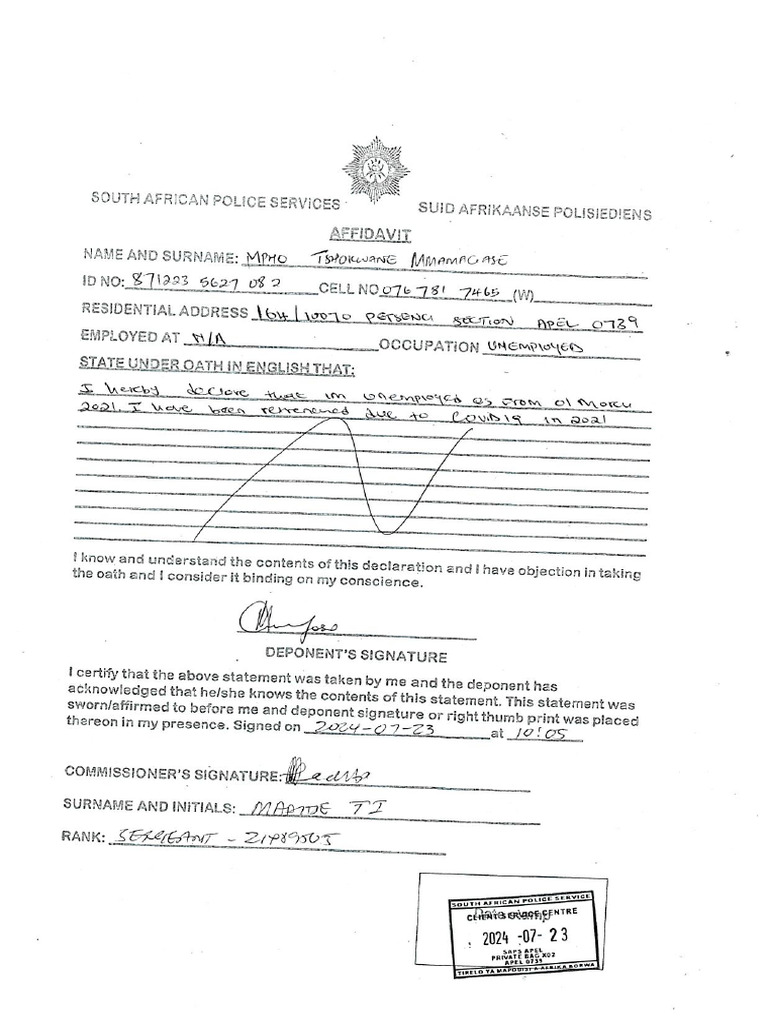 SOUTH AFRICAN POLICE SERVICES SUID AFRIKAANSE POLISIEDIENS
AFFIDAVIT
NAME AND SURNAME: MPHO TSHOKWANE MMAMAGASE
ID NO: 871223 5627 082 CELL NO 076 781 7465 (W)
RESIDENTIAL ADDRESS 16H/10070 SECTION APEL 0739
EMPLOYED AT N/A OCCUPATION UNEMPLOYED
STATE UNDER OATH IN ENGLISH THAT:
I hereby declare that im unemployed as from 01 March
2021. I have been retrenched due to COVID19 in 2021
I know and understand the contents of this declaration and I have objection in taking
the oath and I consider it binding on my conscience.
DEPONENT'S SIGNATURE
I certify that the above statement was taken by me and the deponent has
acknowledged that he/she knows the contents of this statement. This statement was
sworn/affirmed to before me and deponent signature or right thumb print was placed
thereon in my presence. Signed on 2024-07-23 at 10:05
COMMISSIONER'S SIGNATURE:
SURNAME AND INITIALS: TI
RANK: SERGEANT -
SOUTH AFRICAN POLICE SERVICE
CLIENT SERVICE CENTRE
2024 -07- 23
SAPS APEL
PRIVATE BAG X02
APEL 0739